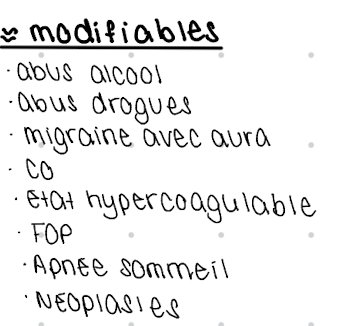 ≈ modifiables
· abus alcool
· abus drogues
· migraine avec aura
· CO
· État hypercoagulable
· FOP
· Apnée sommeil
· Néoplasies